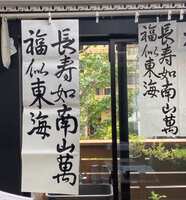 長寿如南山萬
福似東海
長寿如南山萬
福似東海